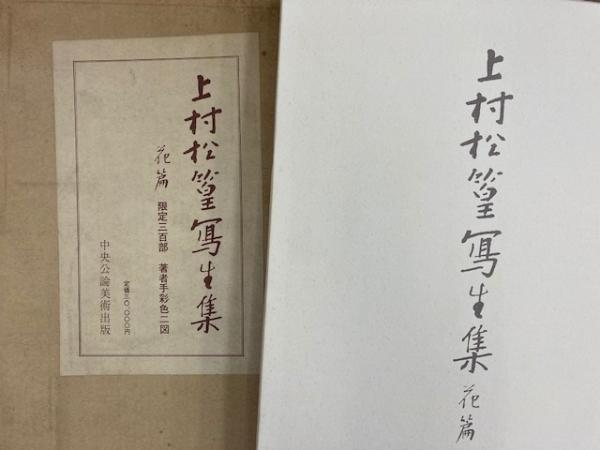 上村松篁寫生集
花篇
限定三百部 著者手彩色二図
定価三〇、〇〇〇円
中央公論美術出版
上村松篁寫生集
花篇